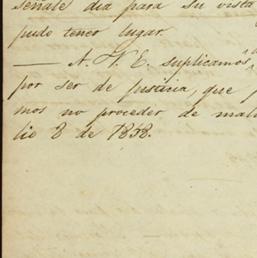 señale dia para su vista
pudo tener lugar.
— A. V. E. suplicamos
por ser de justicia, que
mos no proceder de mali
lio 8 de 1838.